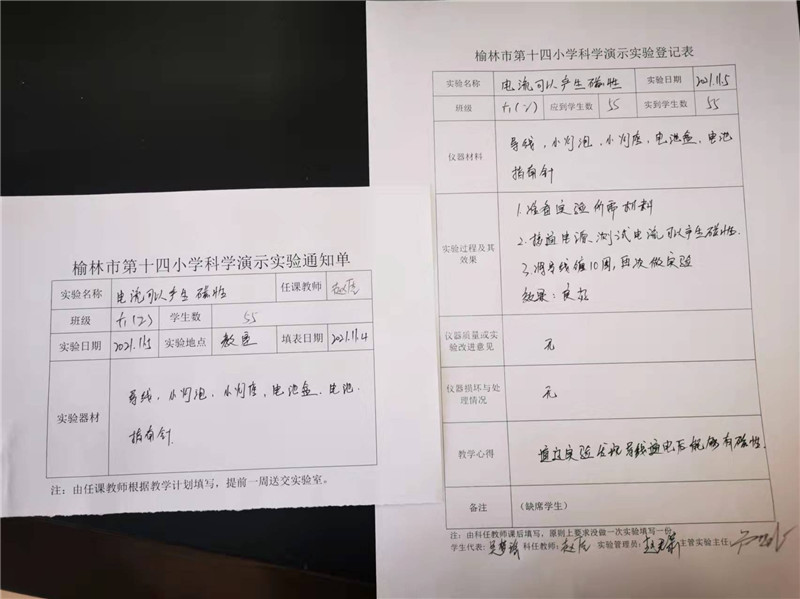 榆林市第十四小学科学演示实验通知单
实验名称 电流可以产生磁性 任课教师
班级 六(2) 学生数 55
实验日期 2021.11.5 实验地点 教室 填表日期 2021.11.4
实验器材
导线、小灯泡、小灯座、电池盒、电池
指南针
注：由任课教师根据教学计划填写，提前一周送交实验室。
榆林市第十四小学科学演示实验登记表
实验名称 电流可以产生磁性 实验日期 2021.11.5
班级 六(2) 应到学生数 55 实到学生数 55
仪器材料
导线、小灯泡、小灯座、电池盒、电池
指南针
实验过程及其
效果
1.准备实验所需材料
2.接通电源、测试电流可以产生磁性.
3.将导线绕10周，再次做实验
效果：良好
仪器质量或实
验改进意见
无
仪器损坏与处
理情况
无
教学心得
通过实验发现导线通电后能够有磁性.
备注 （缺席学生）
注：由科任教师课后填写，原则上要求没做一次实验填写一份
学生代表: 科任教师: 实验管理员: 主管实验主任: